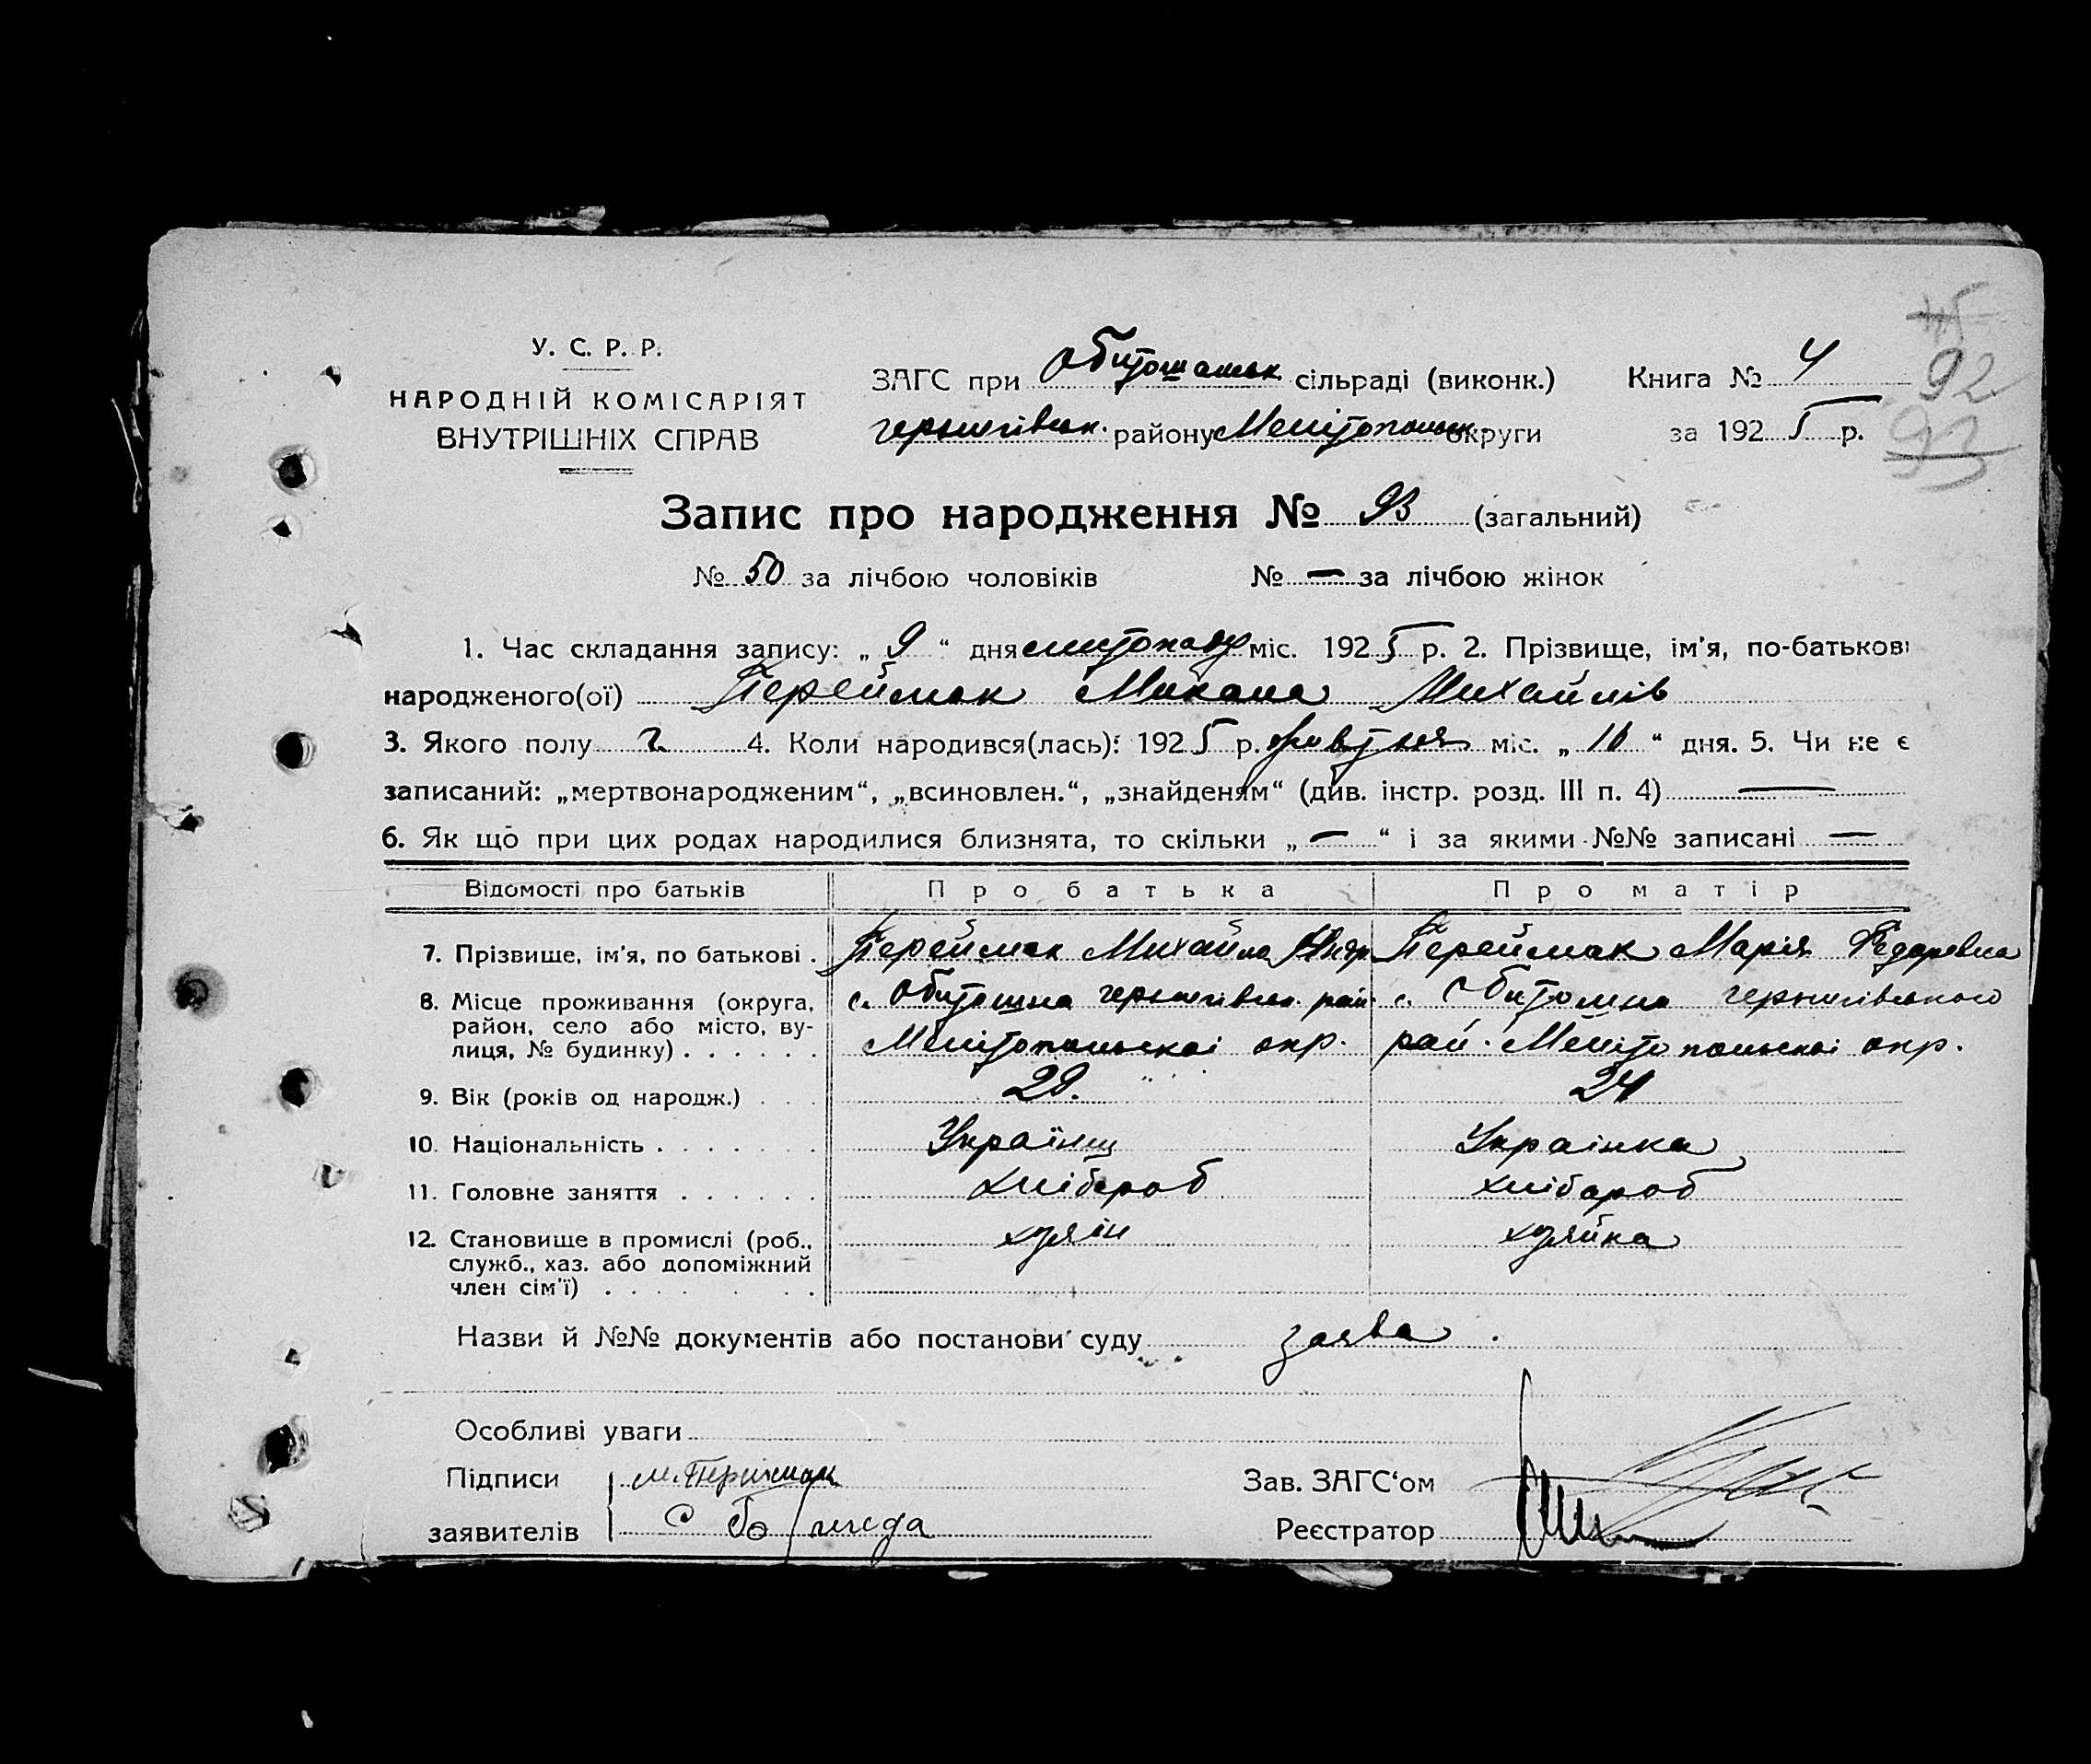 45
92
93
У. С. Р. Р.
НАРОДНІЙ КОМІСАРІЯТ
ВНУТРІШНІХ СПРАВ
ЗАГС при Обиточанськ сільраді (виконк.)
Чернигівськ. району Мелітопольськ округи
Книга № 4
за 1925 р.
Запис про народження № 93 (загальний)
№ 50 за лічбою чоловіків № — за лічбою жінок
1. Час складання запису: „ 9 “ дня листопада міс. 1925 р. 2. Прізвище, ім'я, по-батькові
народженого(ої) Переймак Микола Михайлів
3. Якого полу ч 4. Коли народився(лась): 1925 р. жовтня міс. „ 16 “ дня. 5. Чи не є
записаний: „мертвонародженим“, „всиновлен.“, „знайденям“ (див. інстр. розд. III п. 4) —
6. Як що при цих родах народилися близнята, то скільки „ — “ і за якими №№ записані —
Відомості про батьків Про батька Про матір
7. Прізвище, ім'я, по батькові . Переймак Михайло Переймак Марія Федоревна
8. Місце проживання (округа, с. Обиточна чернигівськ. рай. с. Обиточна чернигівського
район, село або місто, ву-
лиця, № будинку) . . . . . . Мелітопольскоі окр. рай. Мелітопольскоі окр.
9. Вік (років од народж.) . . . 28. 24
10. Національність . . . . . . . Українец Украінка
11. Головне заняття . . . . . . хлібороб хлібороб
12. Становище в промислі (роб., хозяін хозяйка
служб., хаз. або допоміжний
член сім'ї) . . . . . . .
Назви й №№ документів або постанови суду заява .
Особливі уваги
Підписи М. Переймак Зав. ЗАГС'ом
заявителів С Реєстратор